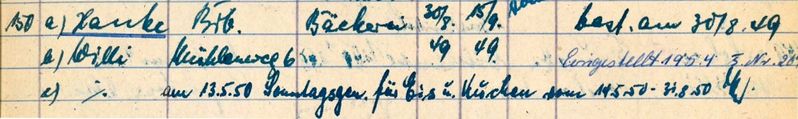 150 a) Hanke Brb. Bäckerei 30/8. 15/9. best. am 30/8. 49
b) Willi Mühlenweg 6 49 49. Eingestellt 1954 z. Nr.
c) ·/. am 13.5.50 Sonntagsgen. für Eis u. Kuchen vom 14.5.50 - 31.8.50